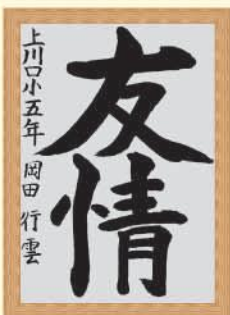 友情
上川口小五年 岡田行雲